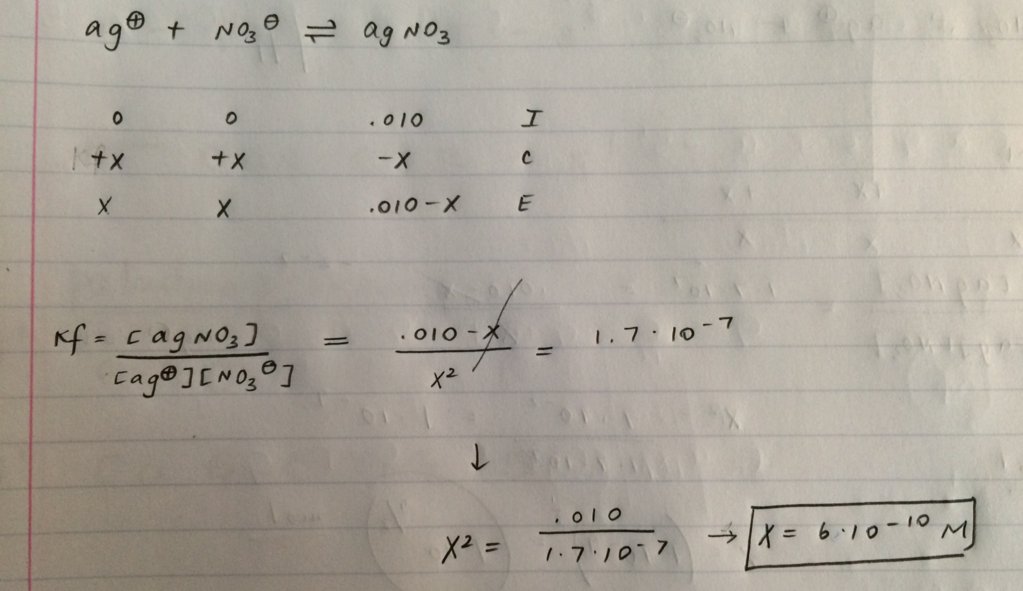 ag⊕ + NO₃⊖ ⇌ agNO₃
0 0 .010 I
+x +x -x C
x x .010-x E
Kf = [agNO₃] / [ag⊕][NO₃⊖] = .010-x / x² = 1.7·10⁻⁷
↓
x² = .010 / 1.7·10⁻⁷ → x = 6·10⁻¹⁰ M